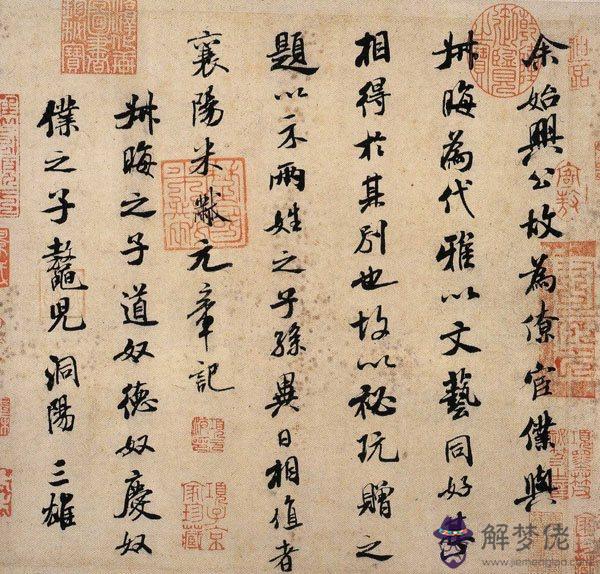 余始興公故為僚宦僕與
叔晦為代雅以文藝同好甚
相得於其別也故以秘玩贈之
題以示兩姓之子孫異日相值者
襄陽米黻元章記
叔晦之子道奴德奴慶奴
僕之子鼇兒洞陽三雄
項子京家珍藏
解梦佬
www.jiemenglao.com